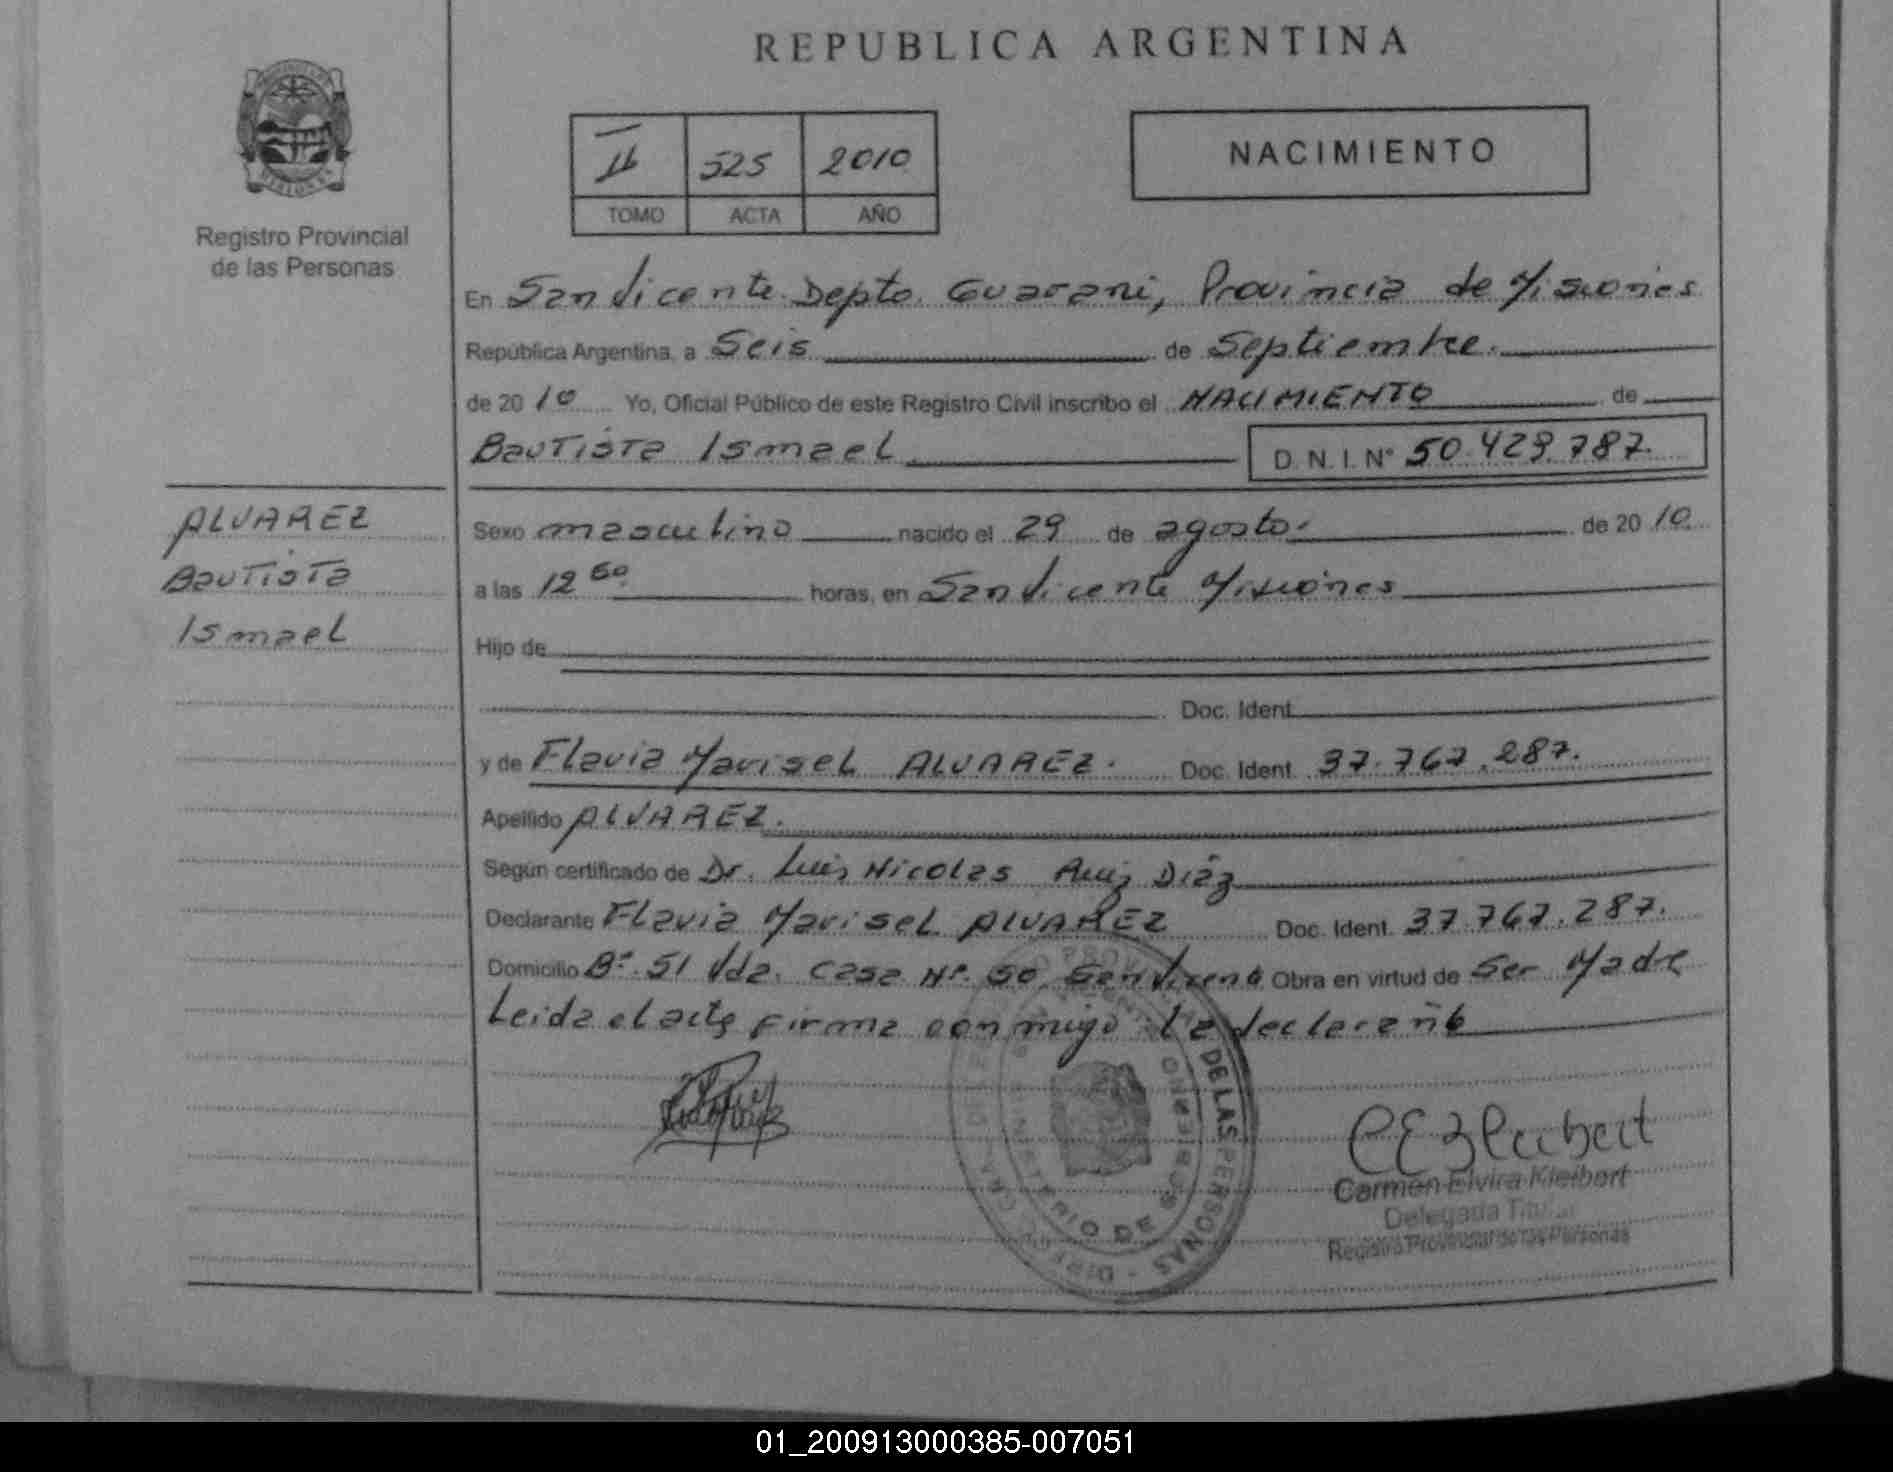 REPUBLICA ARGENTINA
II 525 2010
TOMO ACTA AÑO
NACIMIENTO
Registro Provincial
de las Personas
En San Vicente Depto. Guarani, Provincia de Misiones
República Argentina, a Seis de Septiembre.
de 2010 Yo, Oficial Público de este Registro Civil inscribo el NACIMIENTO de
Bautista Ismael D. N. I. N° 50.429.787.
ALVAREZ
Bautista
Ismael
Sexo masculino nacido el 29 de agosto. de 2010
a las 12 horas, en San Vicente Misiones
Hijo de
Doc. Ident.
y de Flavia Marisel ALVAREZ. Doc. Ident. 37.767.287.
Apellido ALVAREZ.
Según certificado de Dr. Luis Nicolas Ruiz Diaz
Declarante Flavia Marisel ALVAREZ Doc. Ident. 37.767.287.
Domicilio B°. 51 Vda. Casa N°. 50 San Vicente Obra en virtud de Ser Madre
Leida el acta firma con migo la declarante
DE LAS PERSONAS
MINISTERIO DE GOBIERNO
Carmen Elvira Kleibert
Delegada Titular
Registro Provincial de las Personas
01_200913000385-007051